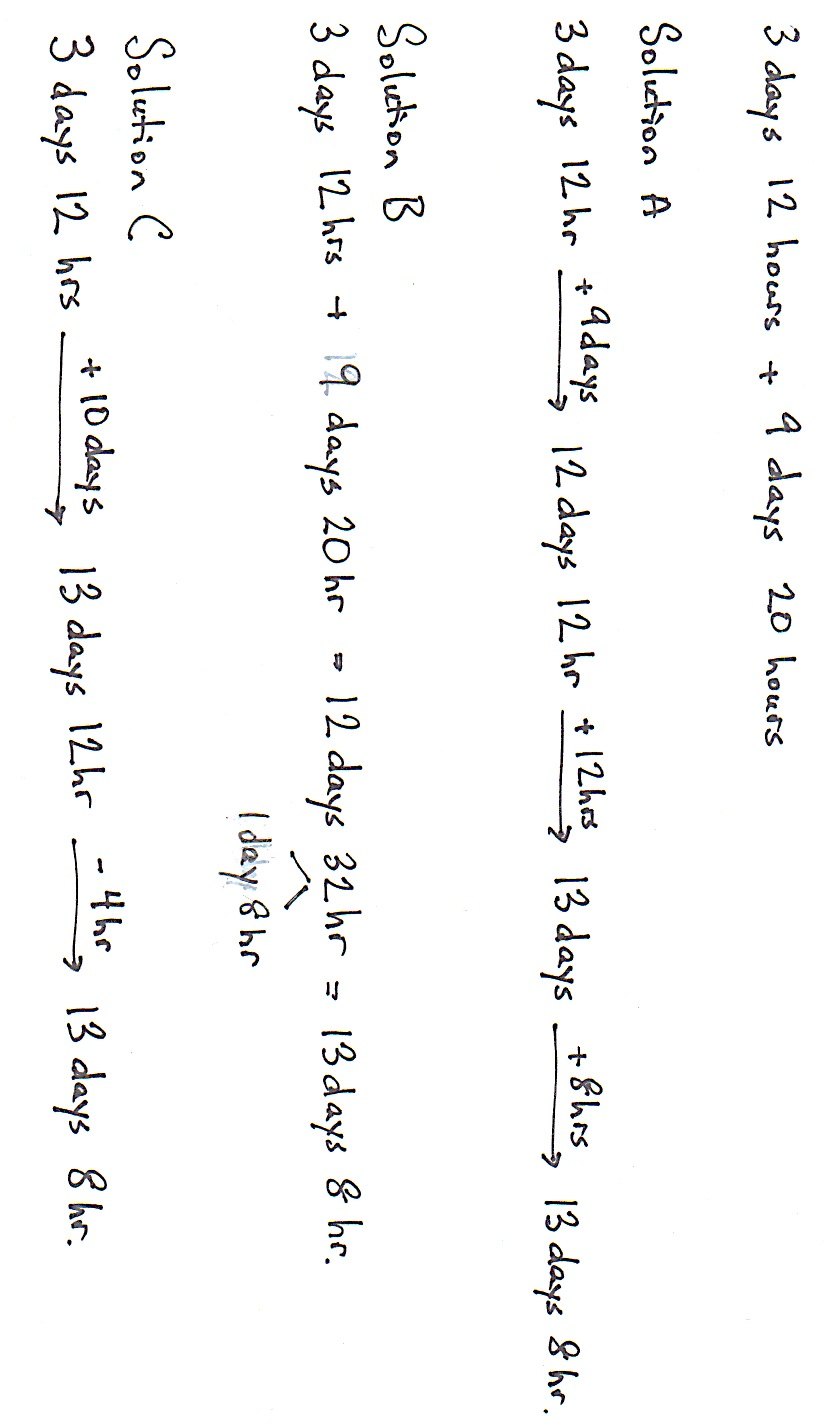 3 days 12 hours + 9 days 20 hours
Solution A
3 days 12 hr +9 days → 12 days 12 hr +12 hrs → 13 days +8 hrs → 13 days 8 hr.
Solution B
3 days 12 hrs + 9 days 20 hr = 12 days 32 hr = 13 days 8 hr.
1 day 8 hr
Solution C
3 days 12 hrs +10 days → 13 days 12 hr -4 hr → 13 days 8 hr.